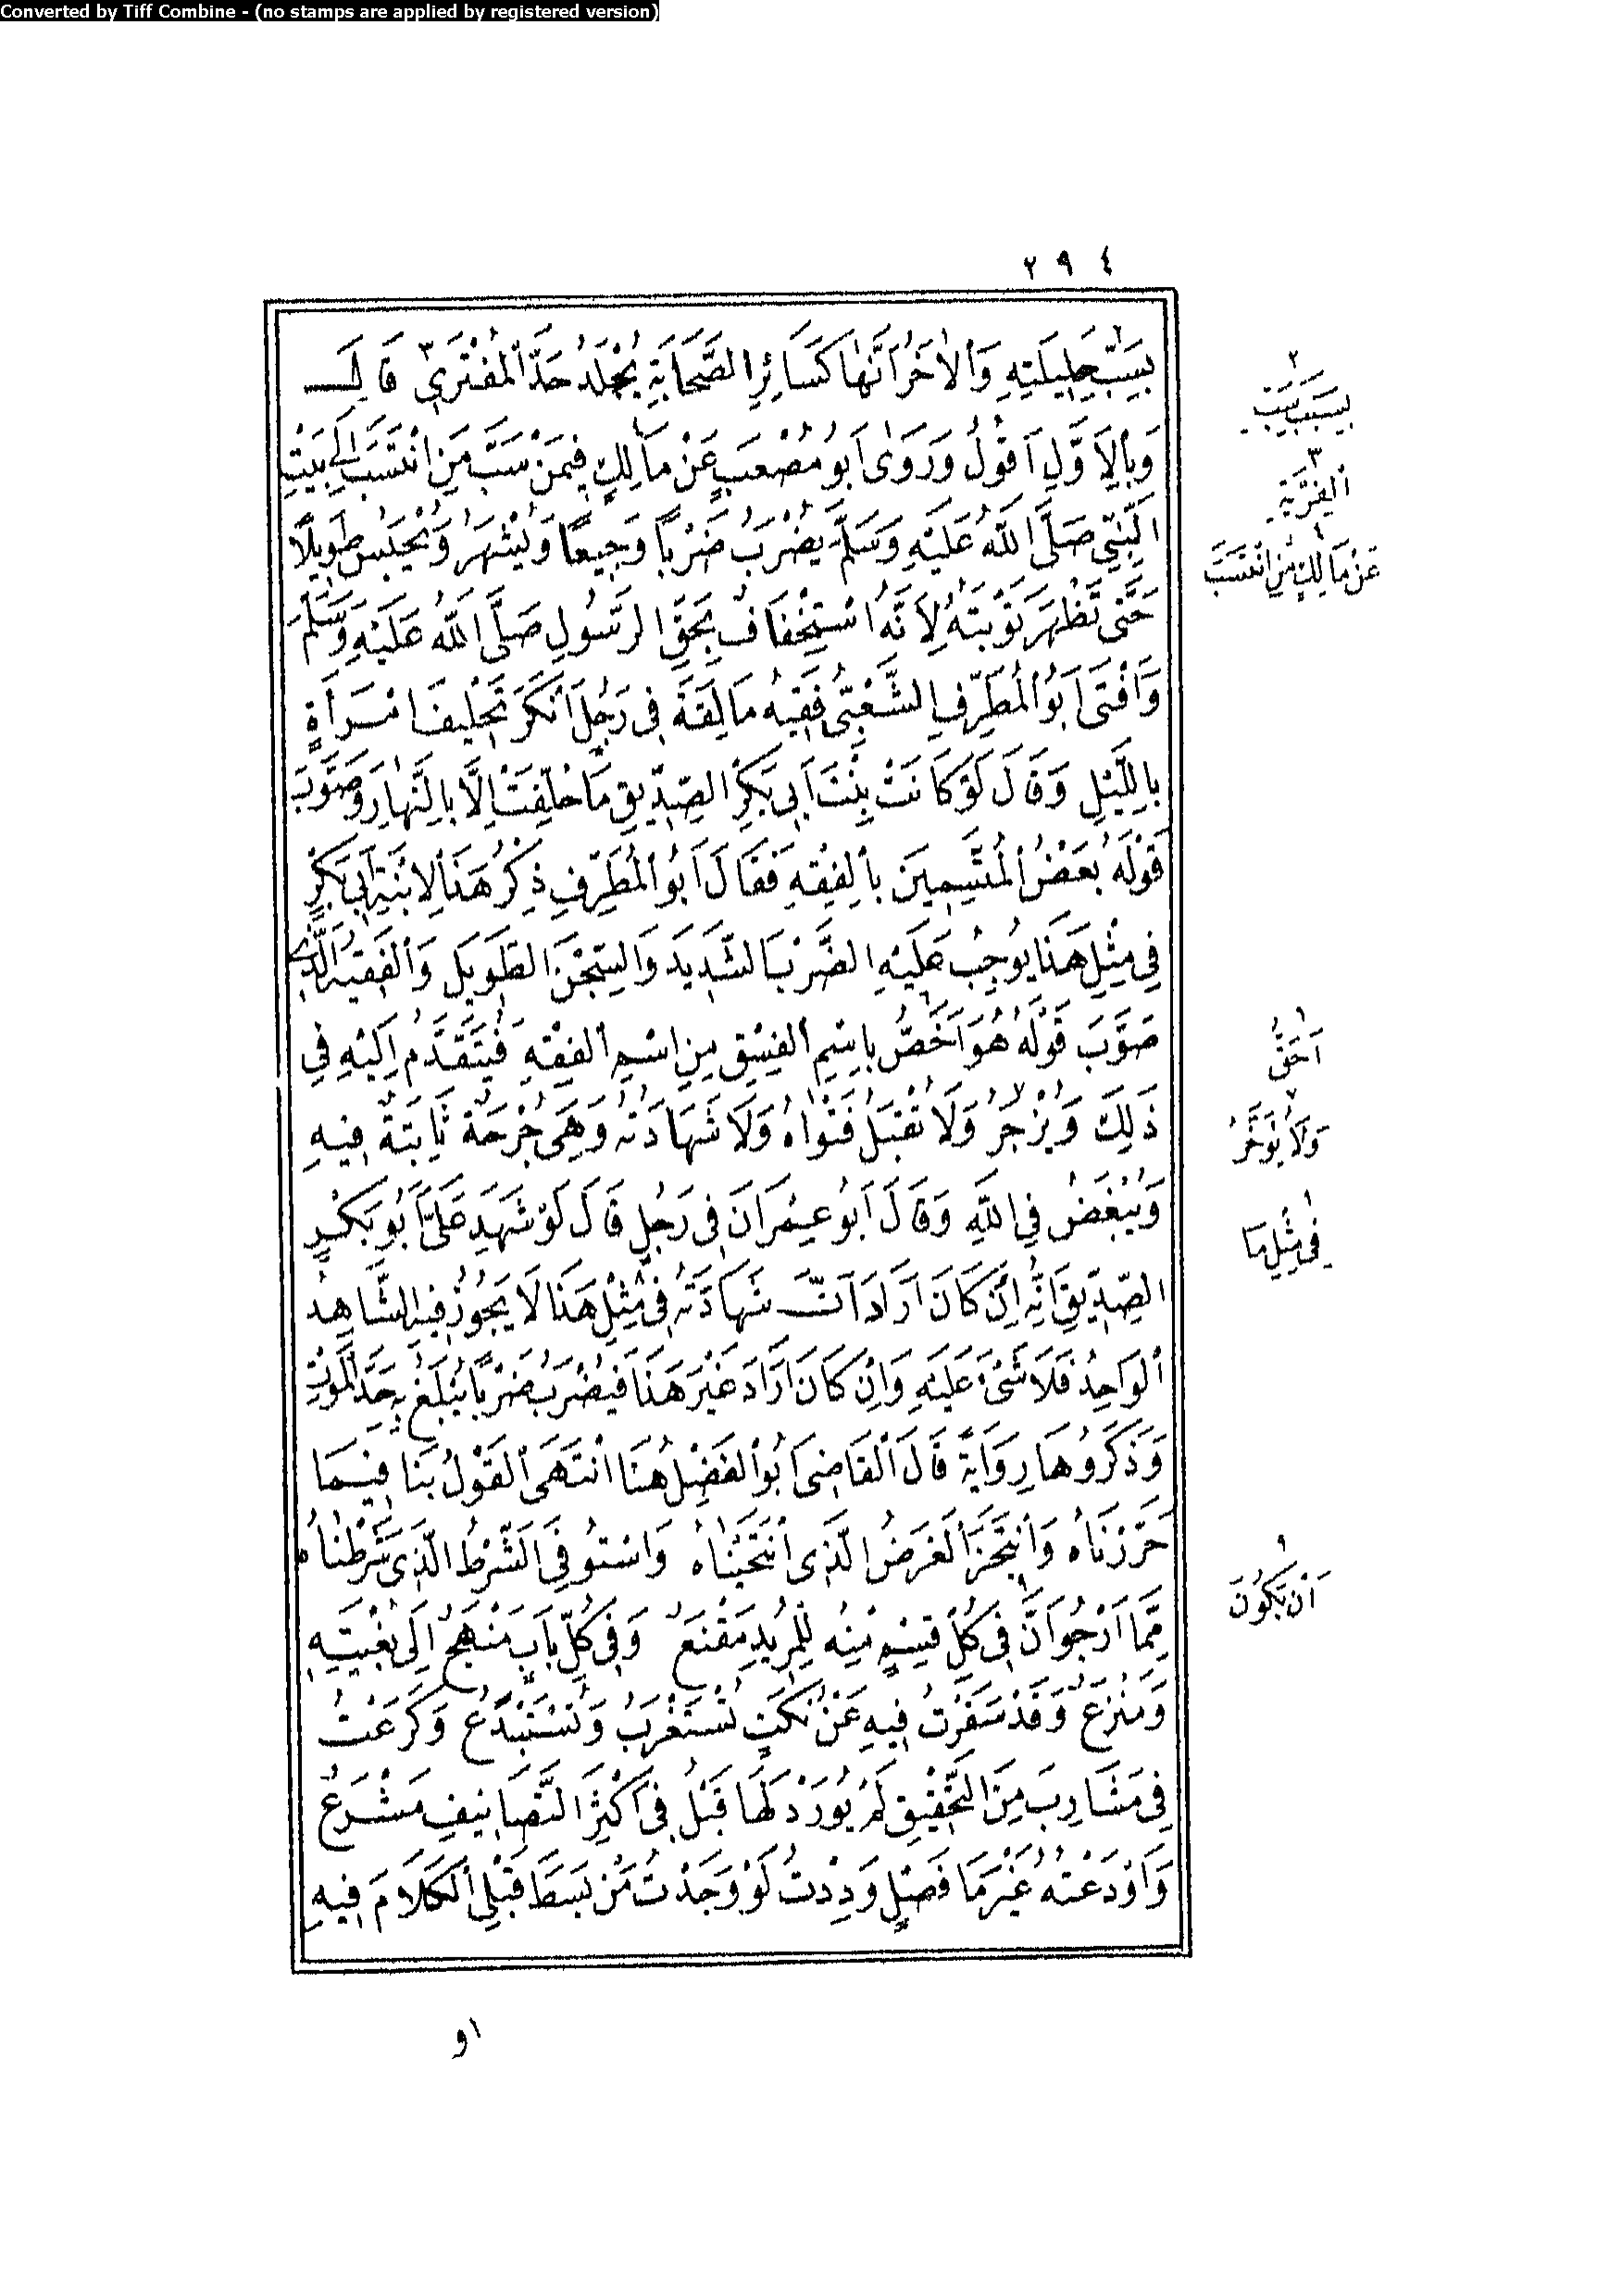 Converted by Tiff Combine - (no stamps are applied by registered version)
٢٩٤
بِسَبِّ حَلِيلَتِهِ وَالْاٰخَرُ اَنَّهَا كَسَائِرِ الصَّحَابَةِ يُجْلَدُ حَدَّ الْمُفْتَرِى قَالَ
وَبِالْاَوَّلِ اَقُولُ وَرَوٰى اَبُو مُصْعَبٍ عَنْ مَالِكٍ فِيمَنْ سَبَّ مَنِ انْتَسَبَ اِلٰى بَيْتِ
النَّبِىِّ صَلَّى اللّٰهُ عَلَيْهِ وَسَلَّمَ يُضْرَبُ ضَرْبًا وَجِيعًا وَيُشْهَرُ وَيُحْبَسُ طَوِيلًا
حَتّٰى تَظْهَرَ تَوْبَتُهُ لِاَنَّهُ اسْتِخْفَافٌ بِحَقِّ الرَّسُولِ صَلَّى اللّٰهُ عَلَيْهِ وَسَلَّمَ
وَاَفْتٰى اَبُو الْمُطَرِّفِ الشَّعْبِىُّ فَقِيهُ مَالِقَةَ فِى رَجُلٍ اَنْكَرَ تَحْلِيفَ امْرَأَةٍ
بِاللَّيْلِ وَقَالَ لَوْ كَانَتْ بِنْتَ اَبِى بَكْرٍ الصِّدِّيقِ مَا حُلِّفَتْ اِلَّا بِالنَّهَارِ وَصَوَّبَ
قَوْلَهُ بَعْضُ الْمُتَّسِمِينَ بِالْفِقْهِ فَقَالَ اَبُو الْمُطَرِّفِ ذِكْرُ هَذَا لِابْنَةِ اَبِى بَكْرٍ
فِى مِثْلِ هَذَا يُوجِبُ عَلَيْهِ الضَّرْبَ الشَّدِيدَ وَالسِّجْنَ الطَّوِيلَ وَالْفَقِيهُ الَّذِى
صَوَّبَ قَوْلَهُ هُوَ اَخَصُّ بِاسْمِ الْفِسْقِ مِنِ اسْمِ الْفِقْهِ فَيُتَقَدَّمُ اِلَيْهِ فِى
ذَلِكَ وَيُزْجَرُ وَلَا تُقْبَلُ فَتْوَاهُ وَلَا شَهَادَتُهُ وَهِىَ جُرْحَةٌ ثَابِتَةٌ فِيهِ
وَيُبْغَضُ فِى اللّٰهِ وَقَالَ اَبُو عِمْرَانَ فِى رَجُلٍ قَالَ لَوْ شَهِدَ عَلَىَّ اَبُو بَكْرٍ
الصِّدِّيقِ اَنَّهُ اِنْ كَانَ اَرَادَ اَنَّ شَهَادَتَهُ فِى مِثْلِ هَذَا لَا يَجُوزُ فِيهِ الشَّاهِدُ
الْوَاحِدُ فَلَا شَىْءَ عَلَيْهِ وَاِنْ كَانَ اَرَادَ غَيْرَ هَذَا فَيُضْرَبُ ضَرْبًا يَبْلُغُ بِهِ حَدَّ الْمَوْتِ
وَذَكَرُوهَا رِوَايَةً قَالَ الْقَاضِى اَبُو الْفَضْلِ هُنَا انْتَهَى الْقَوْلُ بِنَا فِيمَا
حَرَّرْنَاهُ وَانْتَجَزَ الْغَرَضُ الَّذِى انْتَحَيْنَاهُ وَاسْتُوفِىَ الشَّرْطُ الَّذِى شَرَطْنَاهُ
مِمَّا اَرْجُو اَنَّ فِى كُلِّ قِسْمٍ مِنْهُ لِلْمُرِيدِ مَقْنَعٌ وَفِى كُلِّ بَابٍ مَنْهَجٌ اِلٰى بُغْيَتِهِ
وَمَنْزَعٌ وَقَدْ سَفَرْتُ فِيهِ عَنْ نُكَتٍ تُسْتَغْرَبُ وَتُسْتَبْدَعُ وَكَرَعْتُ
فِى مَشَارِبَ مِنَ التَّحْقِيقِ لَمْ يُورَدْ لَهَا قَبْلُ فِى اَكْثَرِ التَّصَانِيفِ مَشْرَعٌ
وَاَوْدَعْتُهُ غَيْرَ مَا فَصْلٍ وَدِدْتُ لَوْ وَجَدْتُ مَنْ بَسَطَ قَبْلِى الْكَلَامَ فِيهِ
٢
بِسَبَبِ سَبِّ
٣
الْفِرْيَةِ
١
عَنْ مَالِكٍ مَنِ انْتَسَبَ
٦
اَحَقُّ
٧
وَلَا يُؤَخَّرُ
٨
فِى مِثْلِ مَا
٩
اَنْ يَكُونَ
او